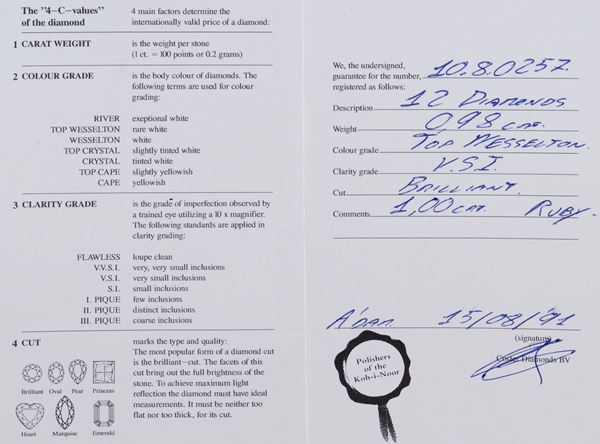 The "4-C-values" of the diamond
4 main factors determine the internationally valid price of a diamond:
1 CARAT WEIGHT
is the weight per stone
(1 ct. = 100 points or 0.2 grams)
2 COLOUR GRADE
is the body colour of diamonds. The
following terms are used for colour
grading:
RIVER exeptional white
TOP WESSELTON rare white
WESSELTON white
TOP CRYSTAL slightly tinted white
CRYSTAL tinted white
TOP CAPE slightly yellowish
CAPE yellowish
3 CLARITY GRADE
is the grade of imperfection observed by
a trained eye utilizing a 10 x magnifier.
The following standards are applied in
clarity grading:
FLAWLESS loupe clean
V.V.S.I. very, very small inclusions
V.S.I. very small inclusions
S.I. small inclusions
I. PIQUE few inclusions
II. PIQUE distinct inclusions
III. PIQUE coarse inclusions
4 CUT
marks the type and quality:
The most popular form of a diamond cut
is the brilliant-cut. The facets of this
cut bring out the full brightness of the
stone. To achieve maximum light
reflection the diamond must have ideal
measurements. It must be neither too
flat nor too thick, for its cut.
Brilliant Oval Pear Princess
Heart Marquise Emerald
We, the undersigned,
guarantee for the number, 10.8.0257.
registered as follows:
Description 12 DIAMONDS
Weight 0,98 crt.
Colour grade TOP WESSELTON.
Clarity grade V.S.I.
Cut BRILLIANT.
Comments 1,00 crt. RUBY.
A'dam 15/08/'91
(signature)
Coster Diamonds BV
Polishers
of the
Koh-i-Noor